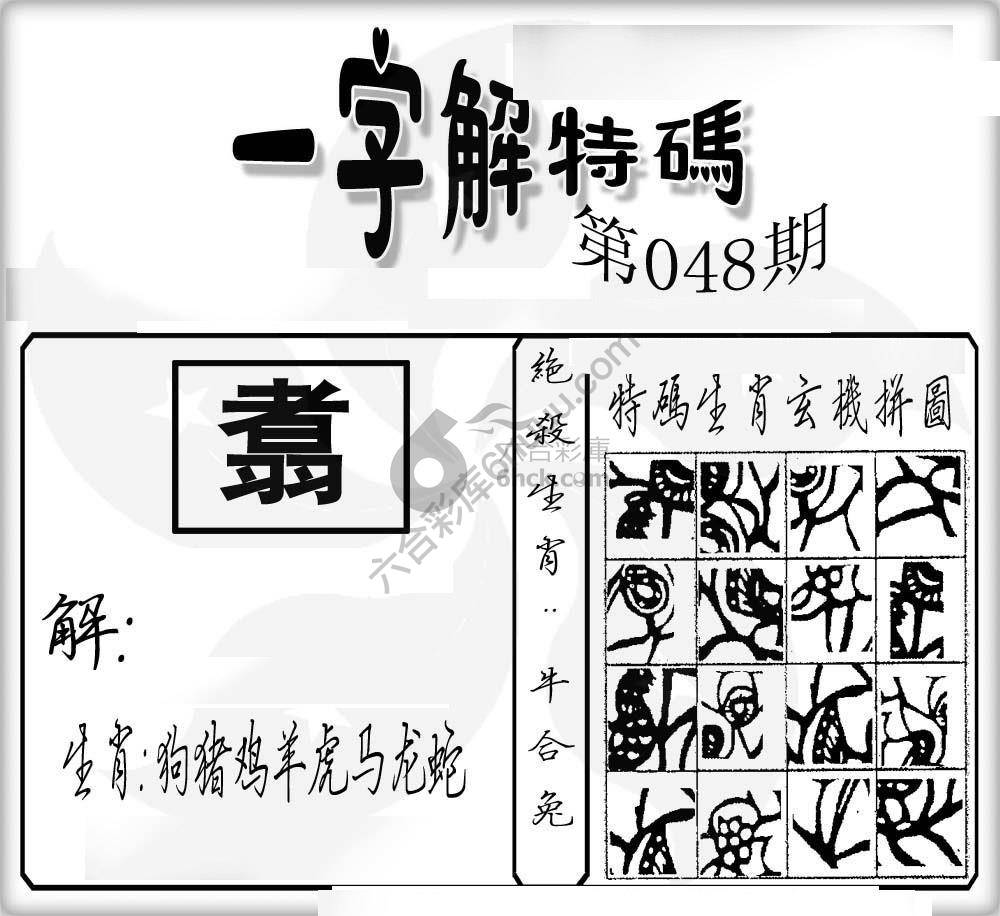 一字解特碼
第048期
翥
解:
生肖:狗猪鸡羊虎马龙蛇
絕殺生肖:牛合兔
特碼生肖玄機拼圖
六合彩库6hck.com
六合彩庫
6hck.com